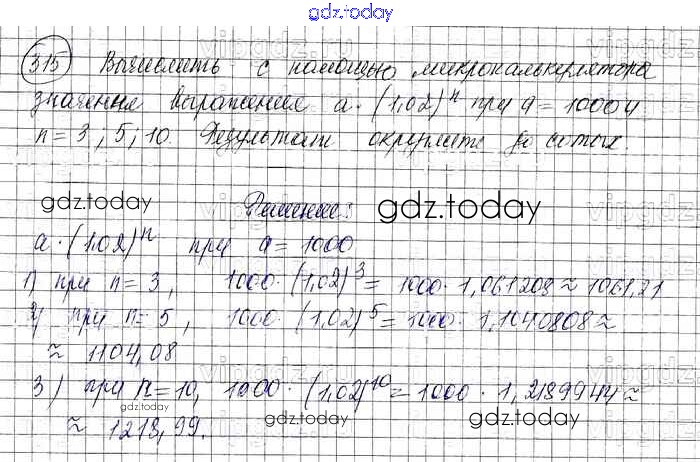 gdz.today
315 Вычислить с помощью микрокалькулятора
значения выражения a·(1,02)^n при a = 1000 и
n = 3; 5; 10. Результат округлить до сотых.
gdz.today
Решение:
gdz.today
a·(1,02)^n при a = 1000
1) при n = 3, 1000·(1,02)^3 = 1000·1,061208 ≈ 1061,21
2) при n = 5, 1000·(1,02)^5 = 1000·1,1040808 ≈
≈ 1104,08
3) при n = 10, 1000·(1,02)^10 = 1000·1,2189944 ≈
gdz.today
gdz.today
gdz.today
≈ 1218,99.